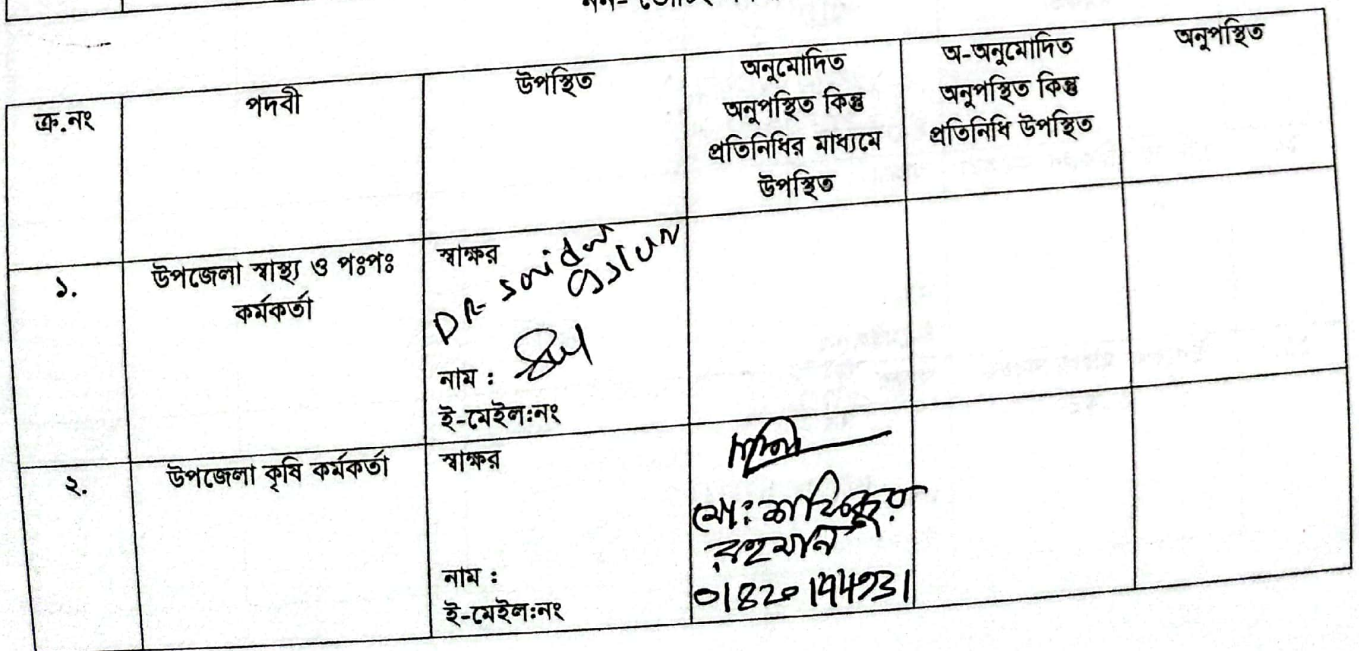 নন-
ক্র.নং
পদবী
উপস্থিত
অনুমোদিত
অনুপস্থিত কিন্তু
প্রতিনিধির মাধ্যমে
উপস্থিত
অ-অনুমোদিত
অনুপস্থিত কিন্তু
প্রতিনিধি উপস্থিত
অনুপস্থিত
১.
উপজেলা স্বাস্থ্য ও পঃপঃ
কর্মকর্তা
স্বাক্ষর
DR
নাম :
ই-মেইল:নং
২.
উপজেলা কৃষি কর্মকর্তা
স্বাক্ষর
নাম :
ই-মেইল:নং
মো:
রহমান